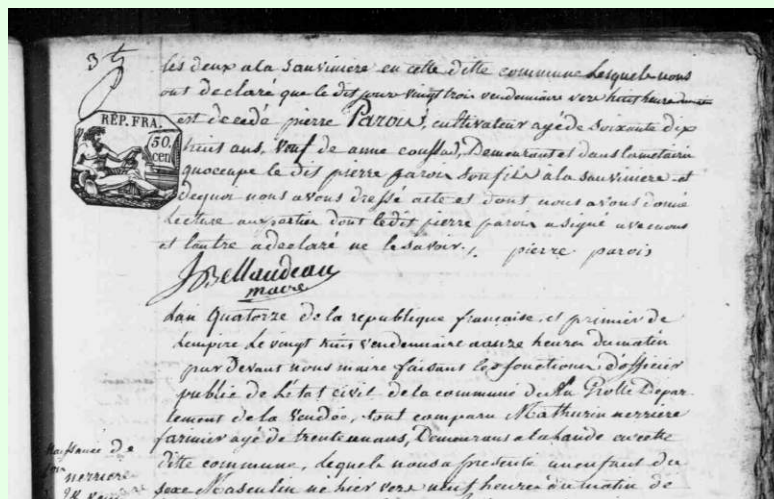 3
les deux a la Sauviniere en cette ditte commune Lesquels nous
ont declaré que le dit jour vingt trois vendemiaire vers huit heure
est decedé pierre Parois, cultivateur agé de Soixante dix
huit ans, veuf de anne Demeurant et dans la metairie
quocupe le dit pierre parois son fils a la sauviniere et
dequoi nous avons dressé acte et dont nous avons donné
Lecture aux partier dont le dit pierre parois a signé avec nous
et lautre a declaré ne le savoir. pierre parois
RÉP. FRA.
50.
cen
maire
Lan Quatorze de la republique française et premier de
Lempire Le vingt huit vendemiaire a onze heures du matin
par Devant nous maire faisant les fonctions d'officier
public de Létat civil de la commune de Depar-
tement de la Vendée, sont comparu Mathurin nerriere
farinier agé de trente un ans, Demeurant a la Lande en cette
ditte commune, Lequel nous a presenté un enfant du
sexe Masculin né hier vers neuf heures du matin de
Naissance de
nerriere